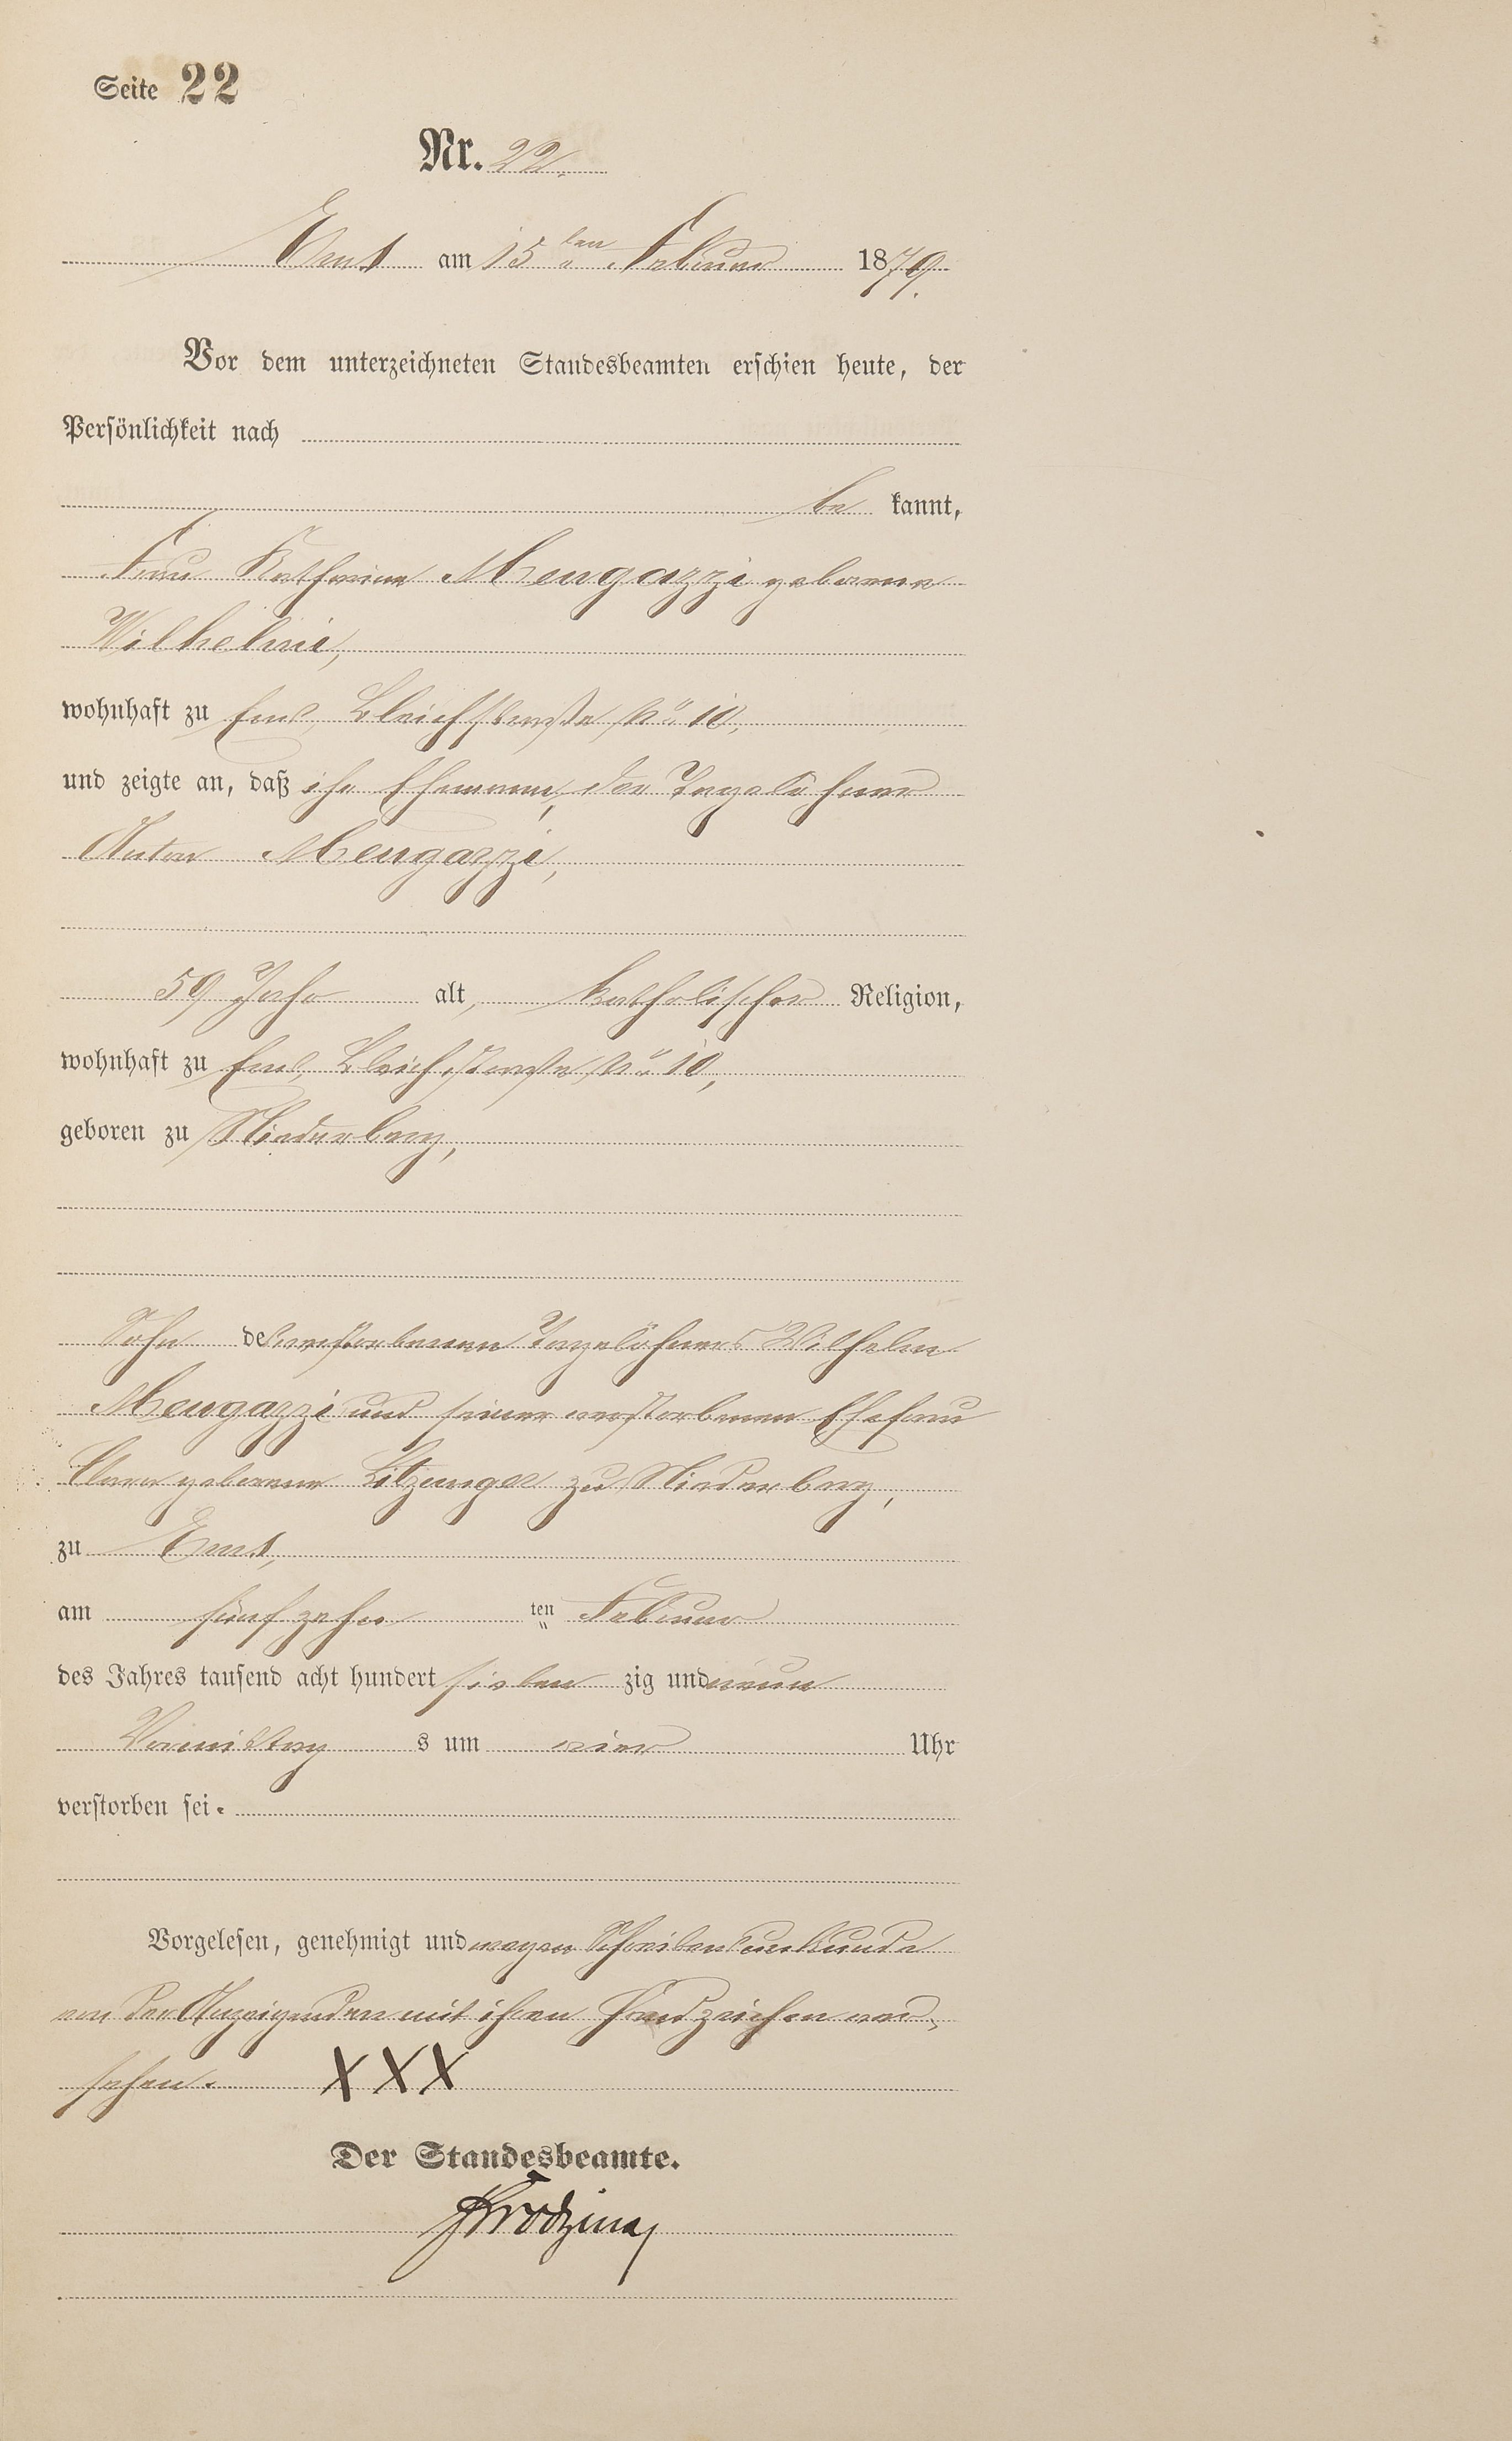 Seite 22
Nr. 22.
Ems am 15ten Februar 1879.
Vor dem unterzeichneten Standesbeamten erschien heute, der
Persönlichkeit nach
be kannt,
Frau Katharine Mengazzi geborene
Wilhelmi,
wohnhaft zu Ems, Bleichstraße No 10,
und zeigte an, daß ihr Ehemann, der Tagelöhner
Anton Mengazzi,
59 Jahr alt, katholischer Religion,
wohnhaft zu Ems, Bleichstraße No 10,
geboren zu Niederberg,
Sohn des verstorbenen Tagelöhners Wilhelm
Mengazzi und seiner verstorbenen Ehefrau
Clara geborene Litzinger zu Niederberg,
zu Ems,
am fünfzehn ten Februar
des Jahres tausend acht hundert sieben zig und neun
Vormittag s um vier Uhr
verstorben sei.
Vorgelesen, genehmigt und wegen Schreibensunkunde
von der Anzeigenden mit ihren Handzeichen ver-
sehen. XXX
Der Standesbeamte.